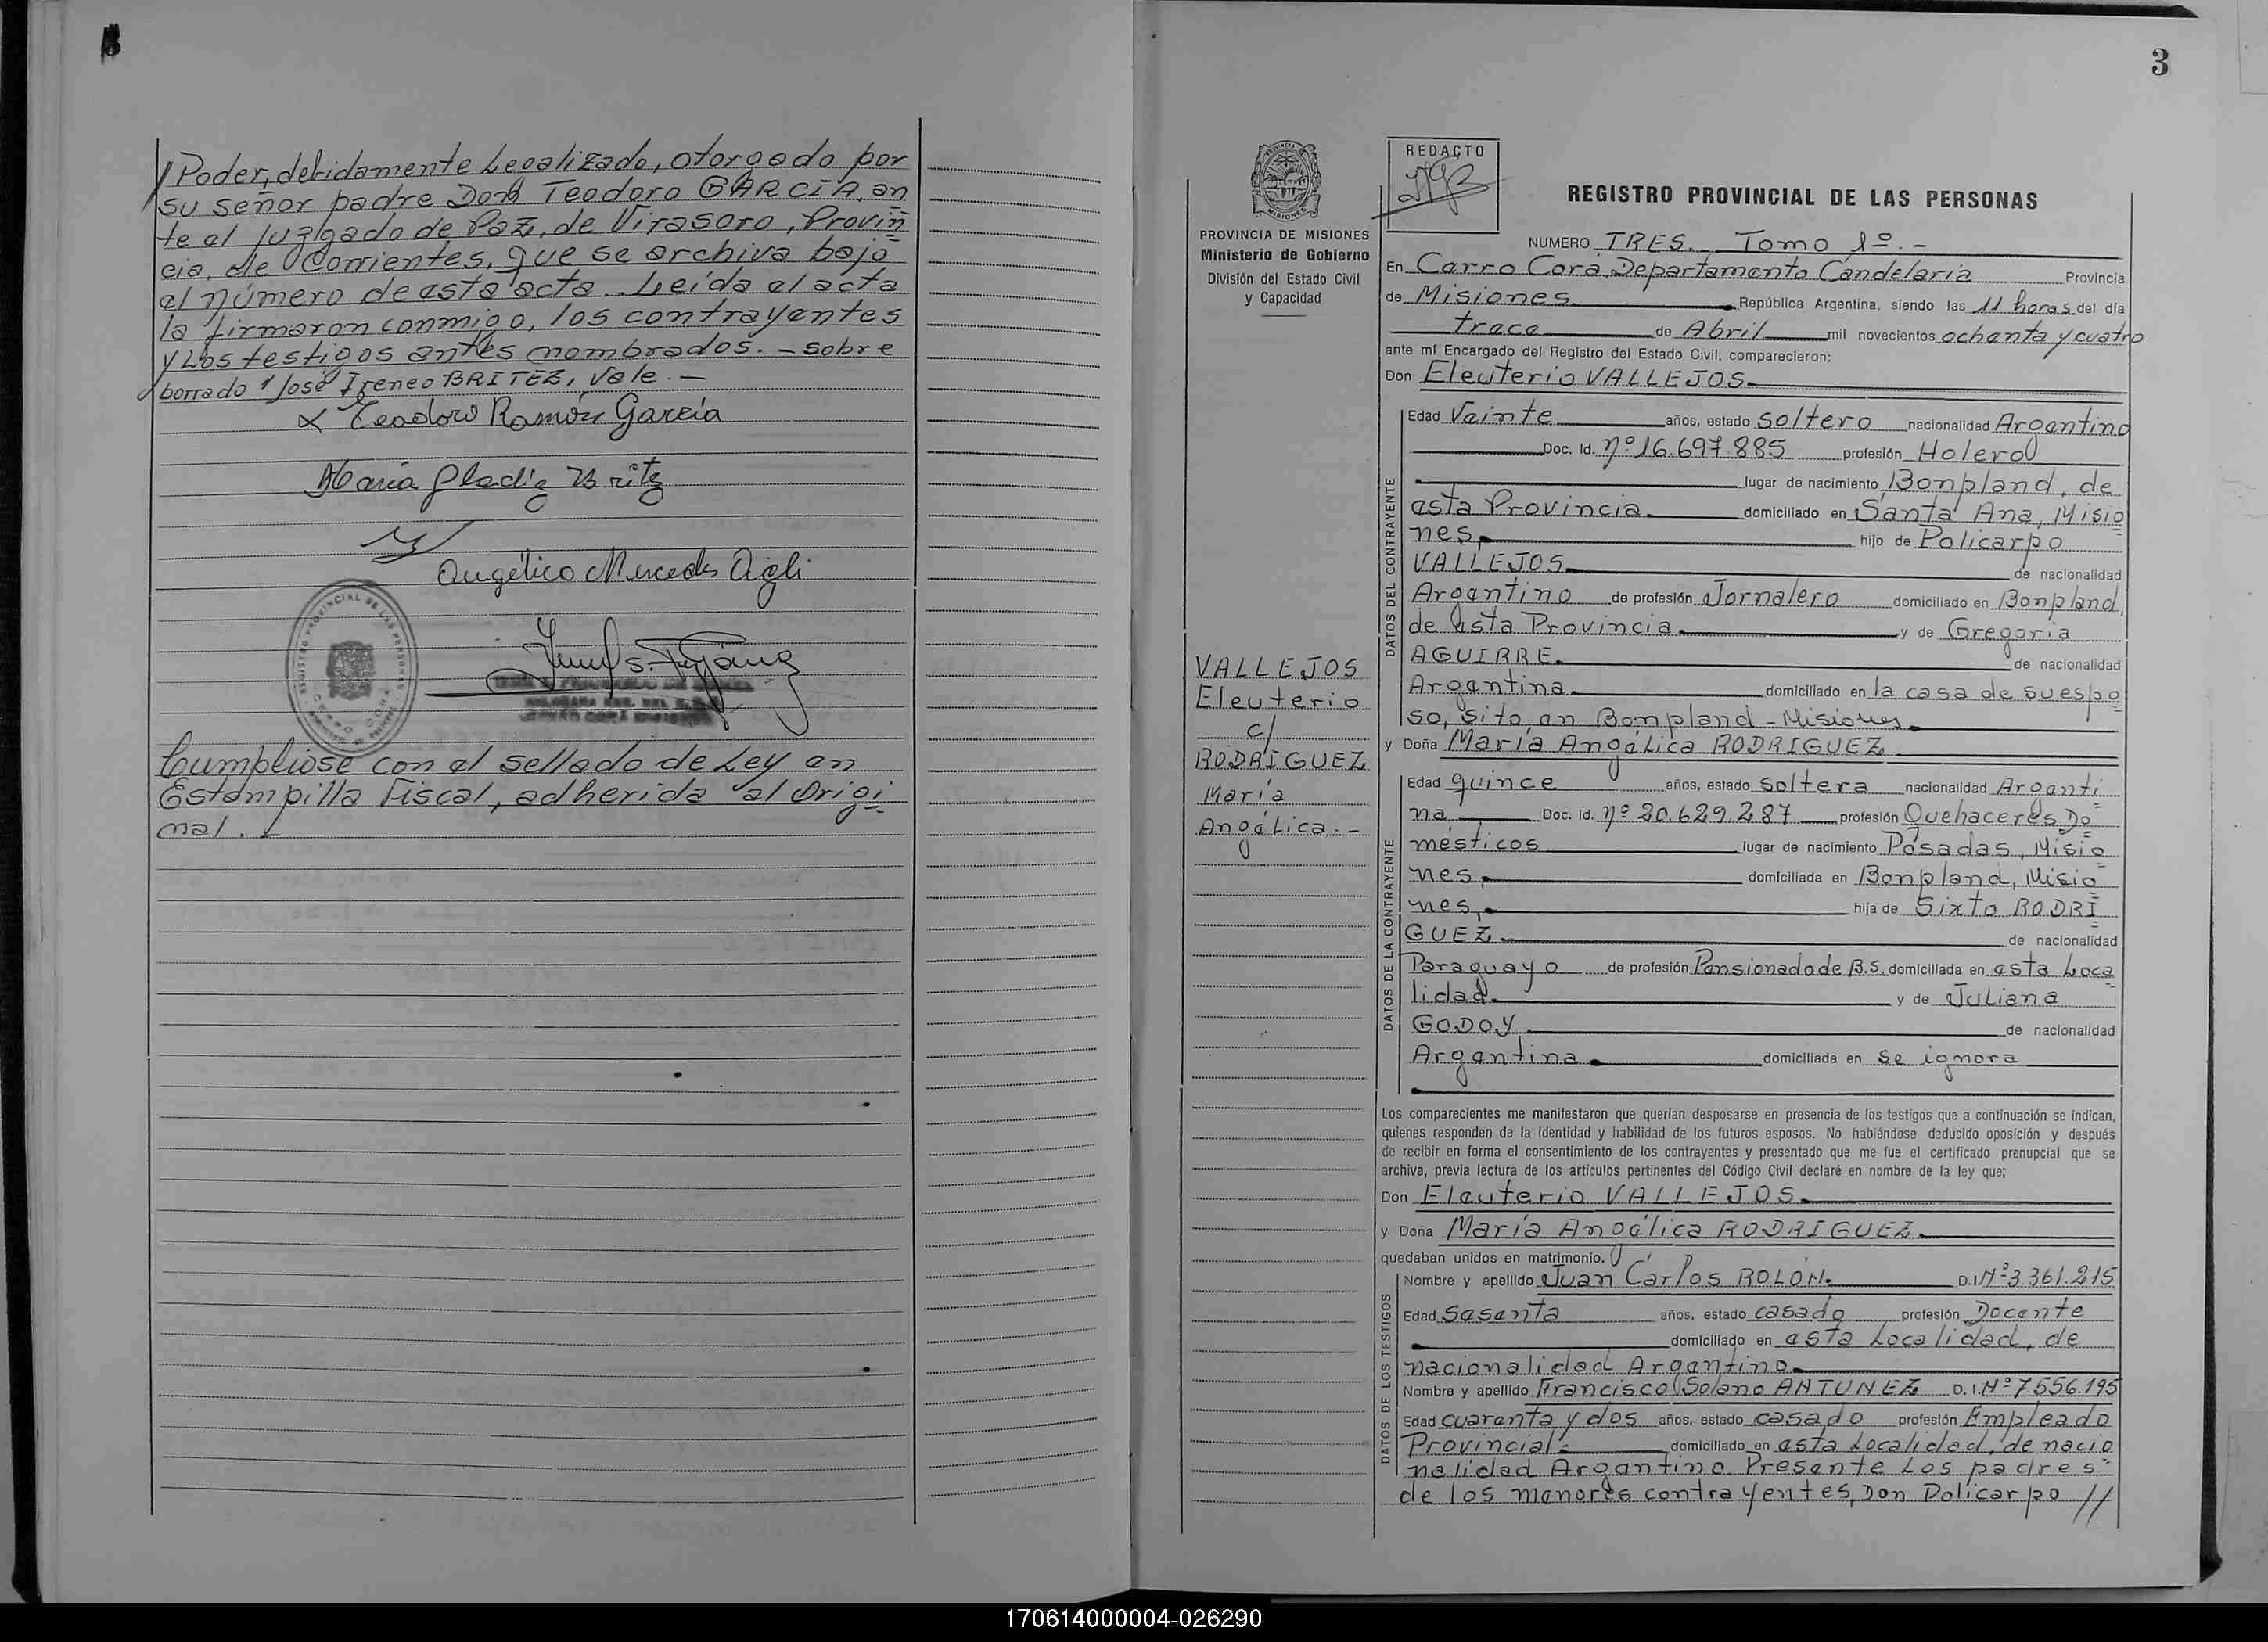 Poder, debidamente Legalizado, otorgado por
su señor padre Don Teodoro GARCÍA, an
te el Juzgado de Paz, de Virasoro, Provin
cia, de Corrientes, que se archiva bajo
el número de esta acta.- Leída el acta
la firmaron conmigo, los contrayentes
y Los testigos antes nombrados. - sobre
borrado " José Ireneo BRITEZ, Vale. -
Teodoro Ramón García
María Gladis Britz
Angélico Mercedes Agli
Cumpliose con el sellado de Ley en
Estampilla Fiscal, adherida al Origi
nal.
3
PROVINCIA DE MISIONES
Ministerio de Gobierno
División del Estado Civil
y Capacidad
VALLEJOS
Eleuterio
c/
RODRÍGUEZ
María
Angélica. -
REDACTO
REGISTRO PROVINCIAL DE LAS PERSONAS
NUMERO TRES. - Tomo 1º. -
En Cerro Corá, Departamento Candelaria Provincia
de Misiones República Argentina, siendo las 11 horas del día
trece de Abril mil novecientos ochenta y cuatro
ante mí Encargado del Registro del Estado Civil, comparecieron:
Don Eleuterio VALLEJOS.
DATOS DEL CONTRAYENTE
Edad Veinte años, estado soltero nacionalidad Argentino
Doc. Id. nº 16.697.885 profesión Holero
lugar de nacimiento Bonpland, de
esta Provincia. domiciliado en Santa Ana, Misio
nes, hijo de Policarpo
VALLEJOS. de nacionalidad
Argentino de profesión Jornalero domiciliado en Bonpland,
de esta Provincia. y de Gregoria
AGUIRRE. de nacionalidad
Argentina. domiciliado en la casa de su espo
so, sito en Bonpland - Misiones.
y Doña María Angélica RODRIGUEZ
DATOS DE LA CONTRAYENTE
Edad quince años, estado soltera nacionalidad Argenti
na Doc. Id. nº 20.629.287 profesión Quehaceres Do
mésticos lugar de nacimiento Posadas, Misio
nes, domiciliada en Bonpland, Misio
nes, hija de Sixto RODRI
GUEZ. de nacionalidad
Paraguayo de profesión Pensionado de B.S. domiciliada en esta Loca
lidad. y de Juliana
GODOY de nacionalidad
Argentina. domiciliada en se ignora
Los comparecientes me manifestaron que querían desposarse en presencia de los testigos que a continuación se indican,
quienes responden de la identidad y habilidad de los futuros esposos. No habiéndose deducido oposición y después
de recibir en forma el consentimiento de los contrayentes y presentado que me fue el certificado prenupcial que se
archiva, previa lectura de los artículos pertinentes del Código Civil declaré en nombre de la ley que;
Don Eleuterio VALLEJOS.
y Doña María Angélica RODRIGUEZ.
quedaban unidos en matrimonio.
DATOS DE LOS TESTIGOS
Nombre y apellido Juan Carlos ROLON. D.I. Nº 3.361.215
Edad Sesenta años, estado casado profesión Docente
domiciliado en esta Localidad, de
nacionalidad Argentino.
Nombre y apellido Francisco Solano ANTUNEZ D.I. Nº 7.556.195
Edad cuarenta y dos años, estado casado profesión Empleado
Provincial. domiciliado en esta Localidad, de nacio
nalidad Argentino. Presente Los padres
de los menores contrayentes, Don Policarpo //
170614000004-026290